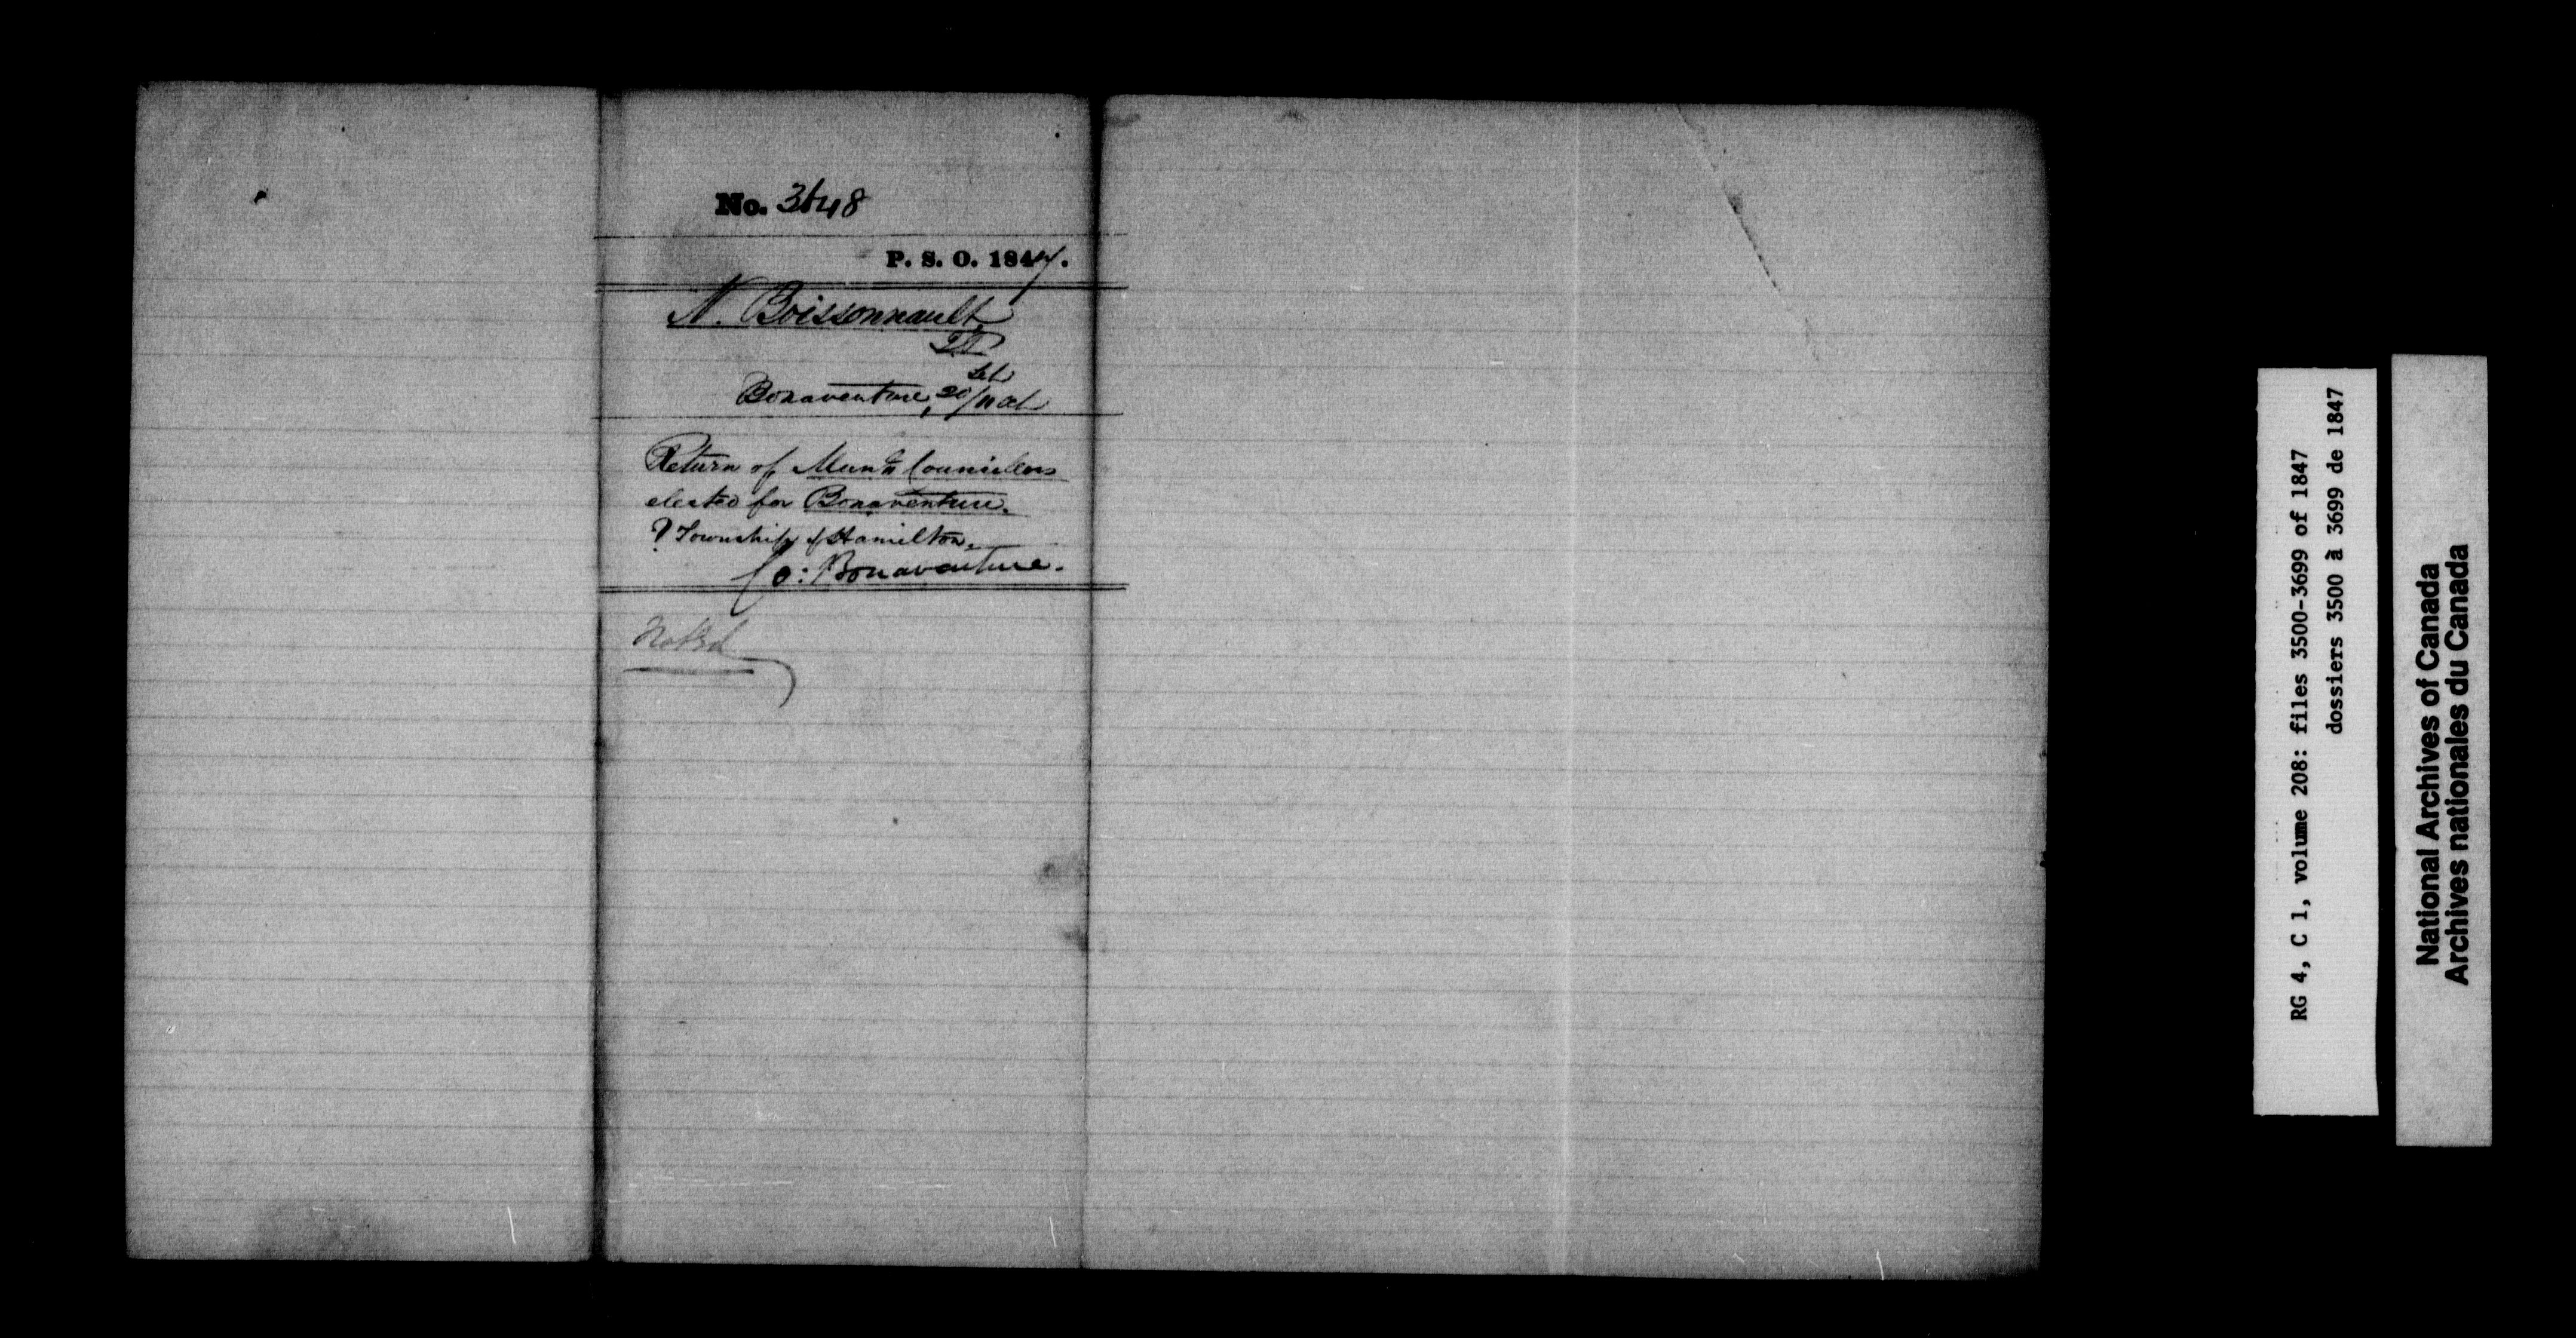 No. 3648
P. S. O. 1847.
N. Boissonnault
Bonaventure, 20/11 Oct
Return of Mun^l Councillors
elected for Bonaventure.
? Township of Hamilton,
Co: Bonaventure.
Noted
RG 4, C 1, volume 208: files 3500-3699 of 1847
dossiers 3500 à 3699 de 1847
National Archives of Canada
Archives nationales du Canada